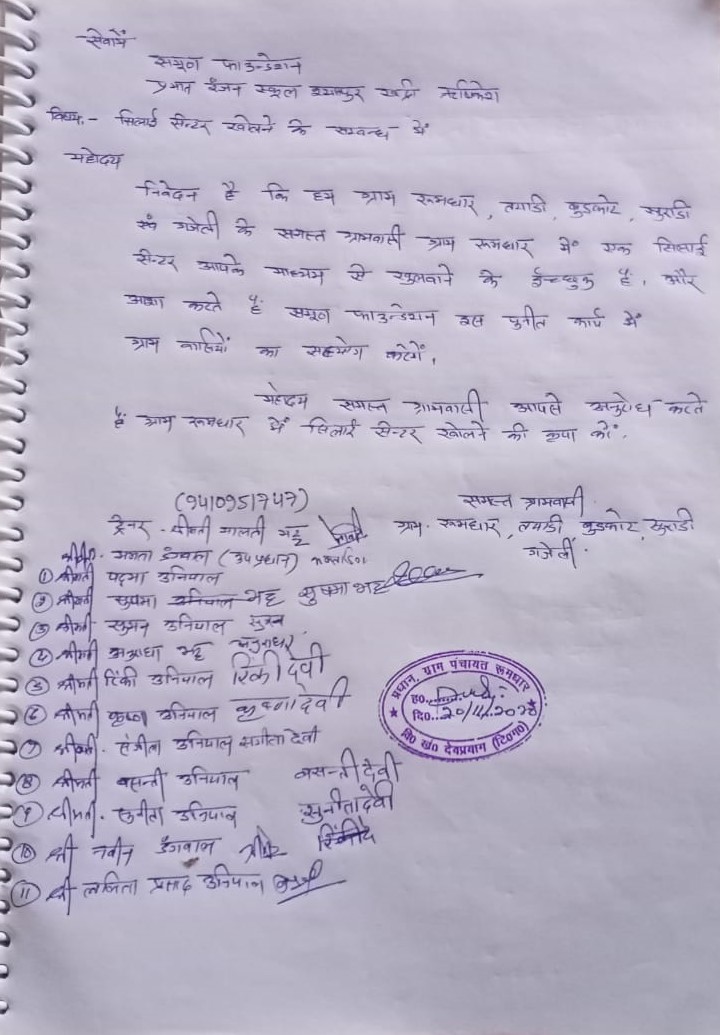 सेवामें
समूण फाउन्डेशन
प्रभात ईंजन स्कूल श्यामपुर खदरी ऋषिकेश
विषय:- सिलाई सेन्टर खोलने के सम्बन्ध में
महोदय
निवेदन है कि हम ग्राम रूमधार, त्याडी, कुडकोट, सुराडी
एवं गजेली के समस्त ग्रामवासी ग्राम रूमधार में एक सिलाई
सेन्टर आपके माध्यम से खुलवाने के ईच्छुक है, और
आशा करते है समूण फाउन्डेशन इस पुनीत कार्य में
ग्राम वासियों का सहयोग करेगें,
महोदय समस्त ग्रामवासी आपसे अनुरोध करते
है ग्राम रूमधार में सिलाई सेन्टर खोलने की कृपा करें,
(9410951747)
समस्त ग्रामवासी
ट्रेनर - श्रीमती मालती भट्ट
ग्राम- रूमधार, त्याडी कुडकोट, सुराडी
गजेली
श्रीमती- ममता डंगवाल (उपप्रधान)
① श्रीमती पदमा उनियाल
② श्रीमती सुषमा उनियाल भट्ट सुषमा भट्ट
③ श्रीमती सुमन उनियाल सुमन
④ श्रीमती अनुराधा भट्ट अनुराधा
⑤ श्रीमती रिंकी उनियाल रिंकी देवी
⑥ श्रीमती कृष्णा उनियाल कृष्णा देवी
⑦ श्रीमती- संगीता उनियाल संगीता देवी
⑧ श्रीमती बसन्ती उनियाल बसन्ती देवी
⑨ श्रीमती- सुनीता उनियाल सुनीता देवी
⑩ श्री नवीन डंगवाल
⑪ श्री ललिता प्रसाद उनियाल
प्रधान, ग्राम पंचायत रूमधार
ह०
दि०
वि० खं० देवप्रयाग (टि०ग०)